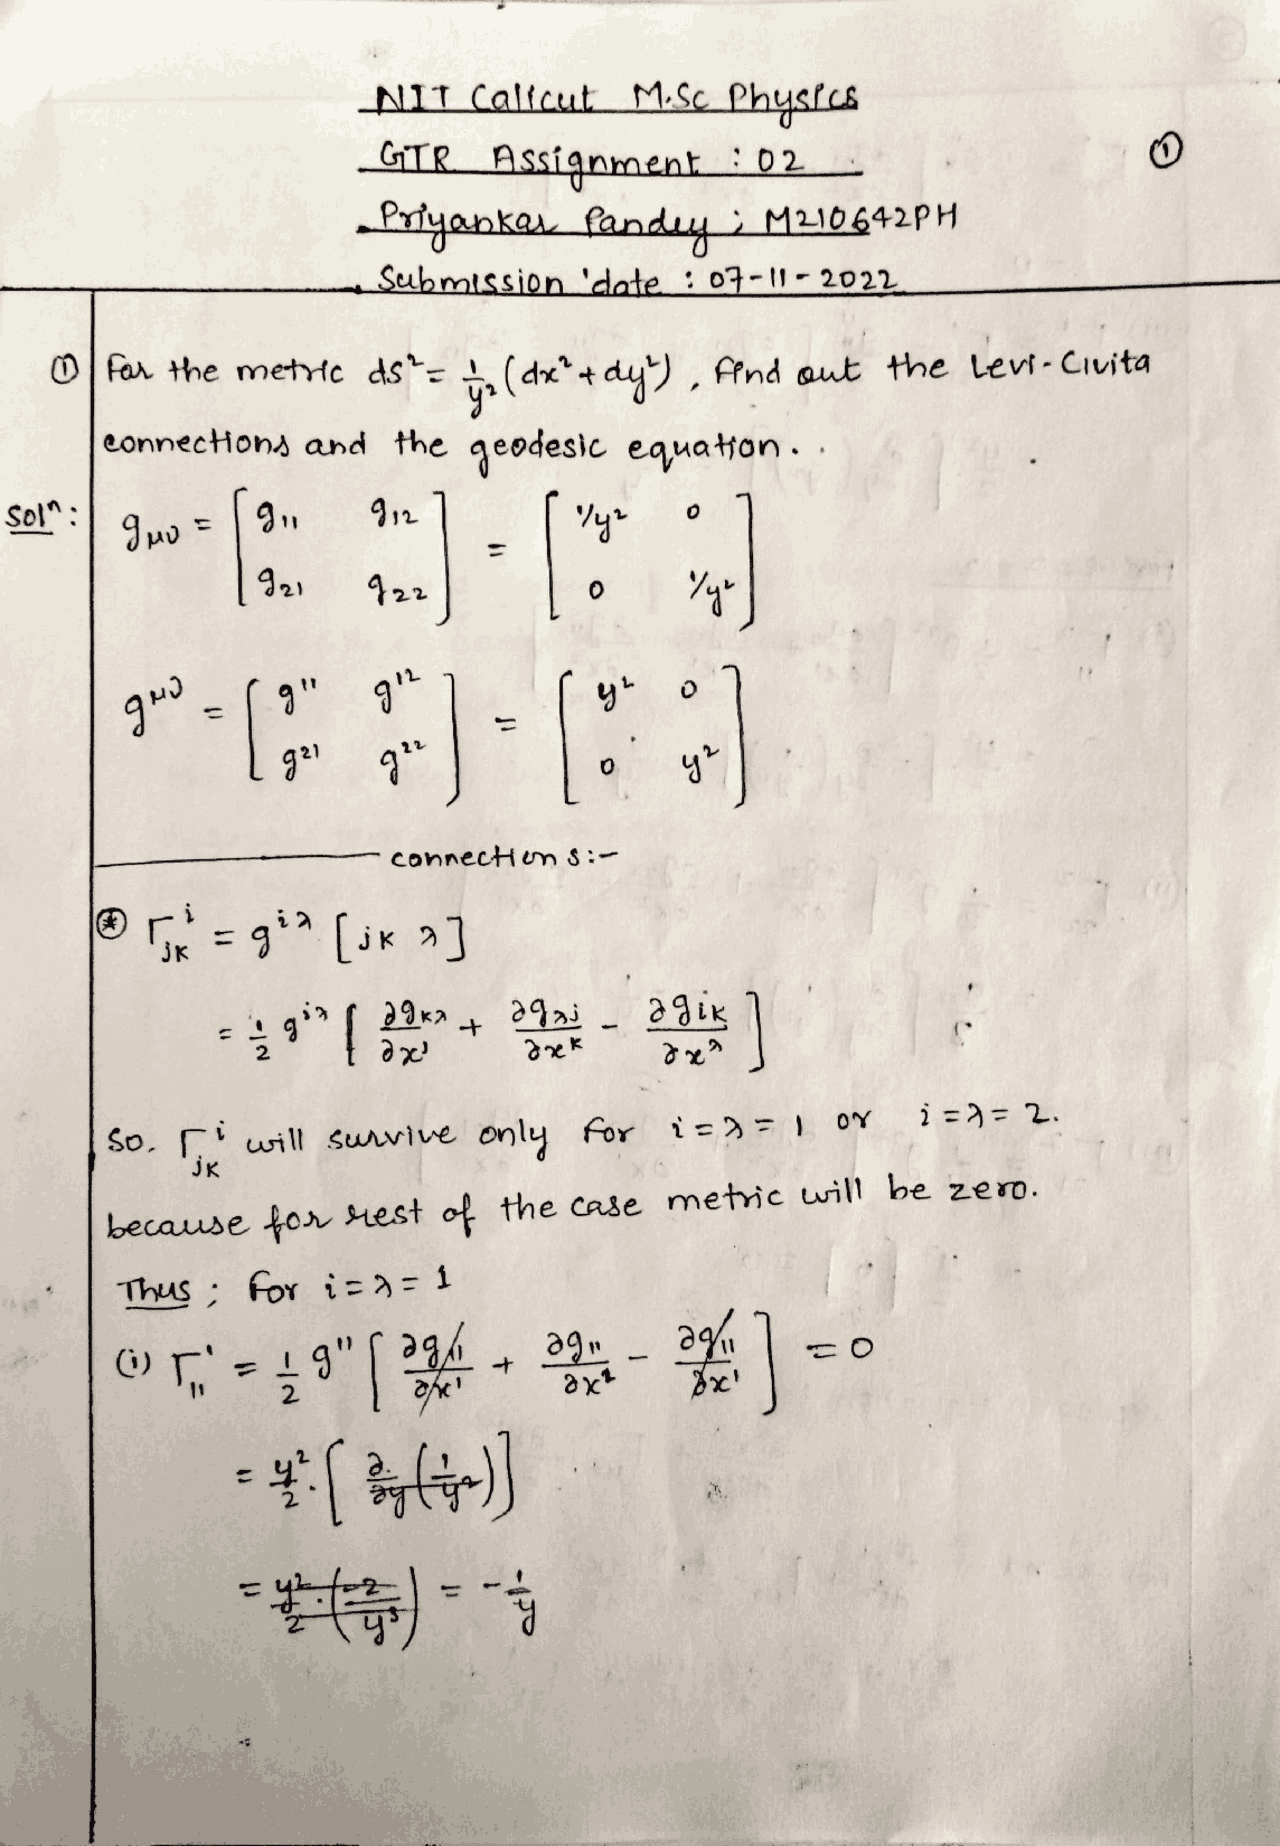 NIT Calicut M.Sc Physics
GTR Assignment : 02
①
Priyankar Pandey ; M210642PH
Submission date : 07-11-2022
① For the metric ds² = 1/y² (dx² + dy²) , find out the Levi-Civita
connections and the geodesic equation.
Solⁿ: g_μν = [ g₁₁ g₁₂ ] = [ 1/y² 0 ]
[ g₂₁ g₂₂ ] [ 0 1/y² ]
g^μν = [ g¹¹ g¹² ] = [ y² 0 ]
[ g²¹ g²² ] [ 0 y² ]
connections:-
⊛ Γ^i_jk = g^iλ [jk λ]
= 1/2 g^iλ [ ∂g_kλ/∂x^j + ∂g_λj/∂x^k - ∂g_ik/∂x^λ ]
So, Γ^i_jk will survive only for i=λ=1 or i=λ=2.
because for rest of the case metric will be zero.
Thus ; for i=λ=1
(i) Γ¹₁₁ = 1/2 g¹¹ [ ∂g₁₁/∂x¹ + ∂g₁₁/∂x¹ - ∂g₁₁/∂x¹ ] = 0
= y²/2 . [ ∂/∂y (1/y²) ]
= y²/2 . (-2/y³) = -1/y